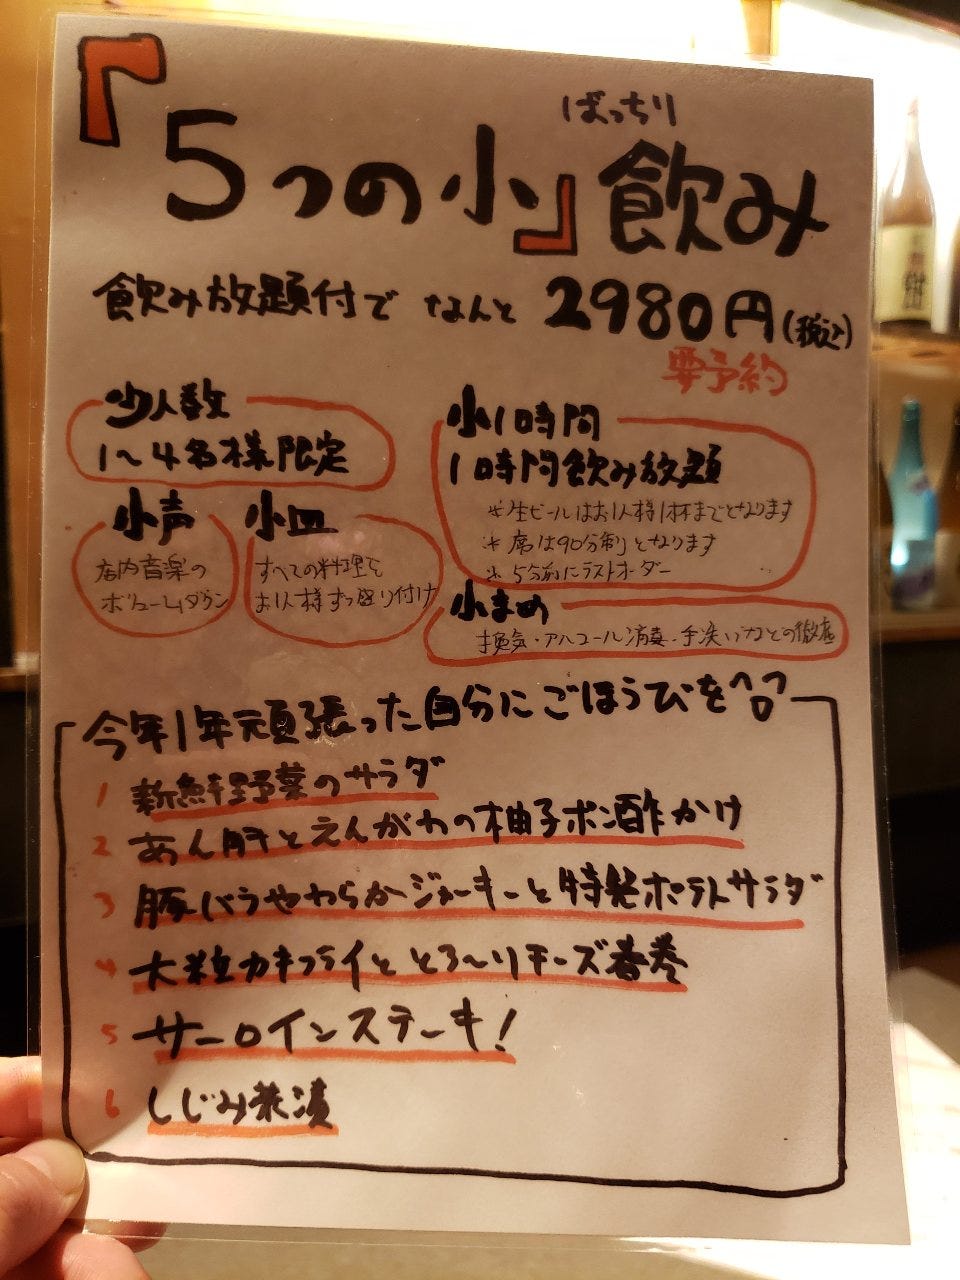 ばっちり
『5つの小』飲み
飲み放題付で なんと 2980円(税込)
要予約
少人数
1〜4名様限定
小声
店内音楽の
ボリュームダウン
小皿
すべての料理を
お1人様ずつ盛り付け
小1時間
1時間飲み放題
※生ビールはお1人様1杯までとなります
※席は90分制となります
※5分前にラストオーダー
小まめ
換気・アルコール消毒・手洗いなどの徹底
今年1年頑張った自分にごほうびを^ロ^
1 新鮮野菜のサラダ
2 あん肝とえんがわの柚子ポン酢かけ
3 豚バラやわらかジャーキーと特発ポテトサラダ
4 大粒カキフライととろ〜りチーズ春巻
5 サーロインステーキ!
6 しじみ茶漬